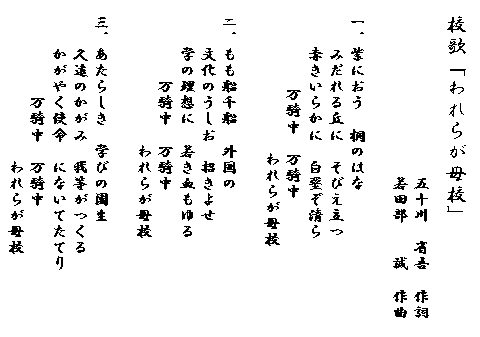 校歌「われらが母校」
五十川 省吾 作詞
若田部 誠 作曲
一、紫におう 桐のはな
みだれる丘に そびえ立つ
赤きいらかに 白堊ぞ清ら
万騎中 万騎中
われらが母校
二、もも船千船 外国の
文化のうしお 招きよせ
学の理想に 若き血もゆる
万騎中 万騎中
われらが母校
三、あたらしき 学びの園生
久遠のかがみ 我等がつくる
かがやく使命 にないてたてり
万騎中 万騎中
われらが母校